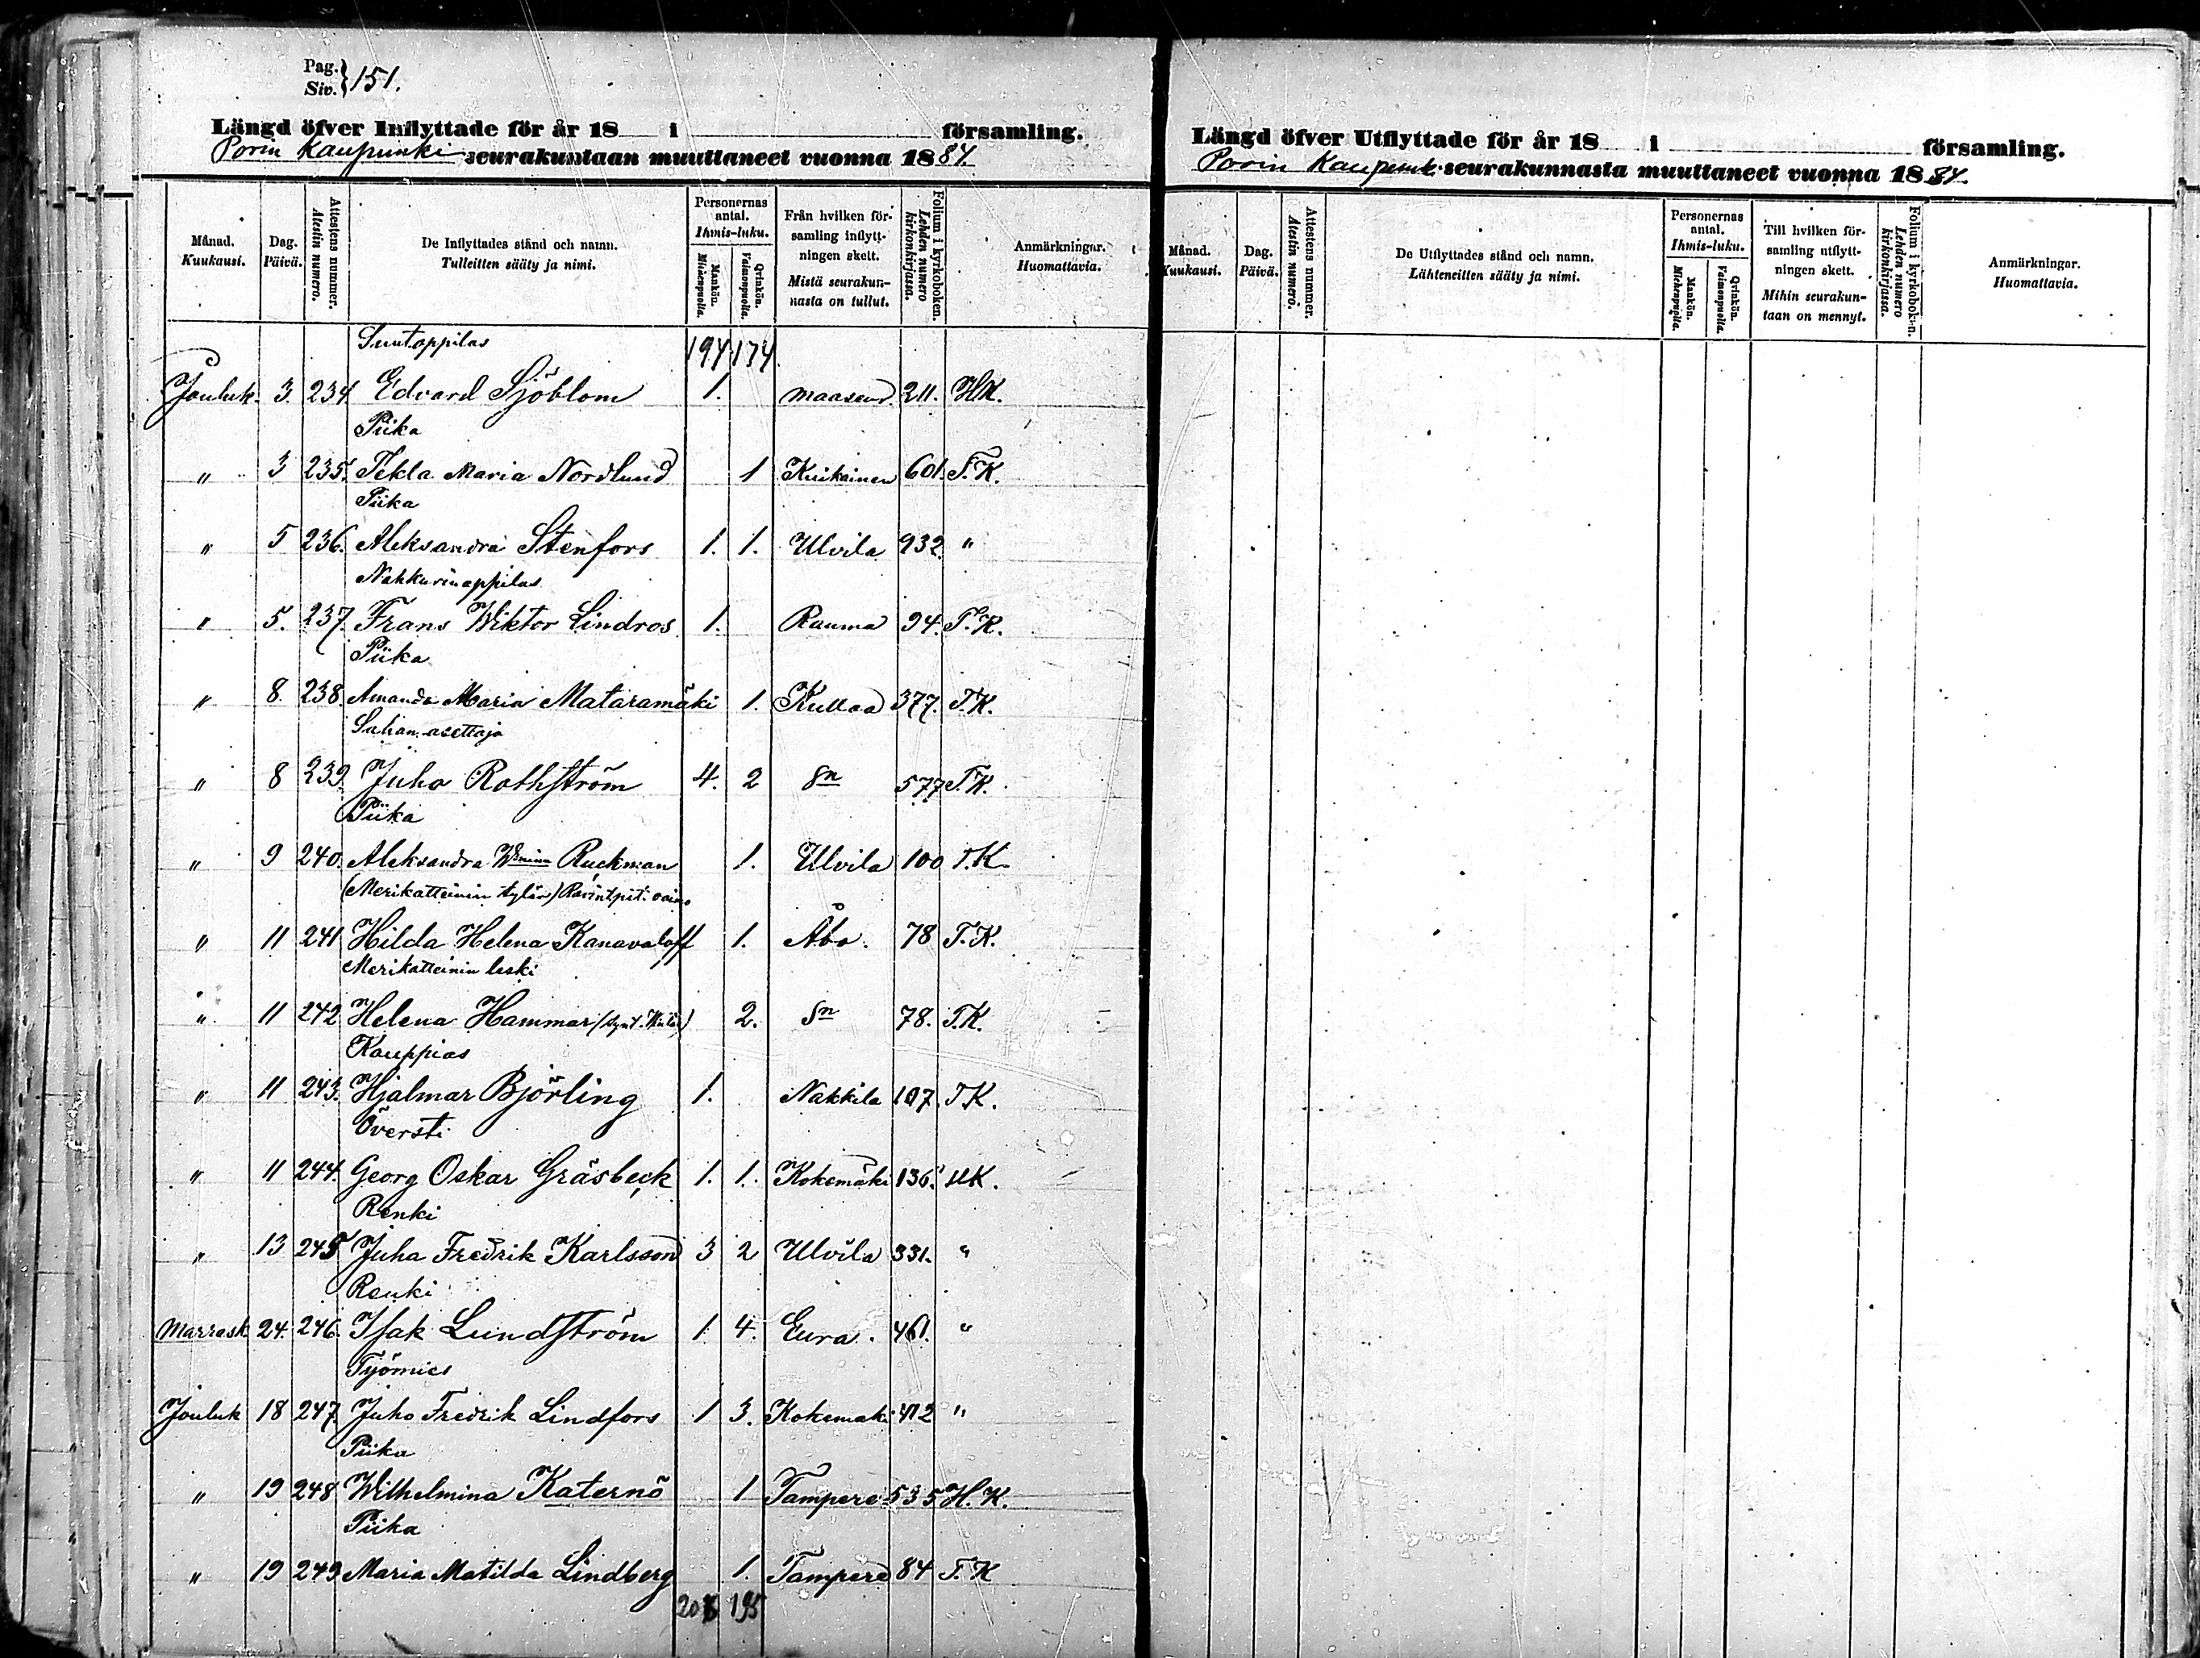 Pag.
Siv. } 151.
Längd öfver Inflyttade för år 18 i församling.
Porin Kaupunki seurakuntaan muuttaneet vuonna 1884
Månad. Kuukausi.
Dag. Päivä.
Attestens nummer. Atestin numero.
De Inflyttades stånd och namn. Tulleitten sääty ja nimi.
Personernas antal. Ihmis-luku.
Mankön. Miehenpuolia.
Qvinkön. Vaimonpuolia.
Från hvilken församling inflyttningen skett. Mistä seurakunnasta on tullut.
Folium i kyrkoboken. Lehden numero kirkonkirjassa.
Anmärkningar. Huomattavia.
194 174
Jouluk. 3. 234. Edvard Sjöblom 1. maaseur. 211. HK.
Piika
" 3 235. Tekla Maria Nordlund 1 Kiikainen 601. T.K.
Piika
" 5 236. Aleksandra Stenfors 1. 1. Ulvila 932 "
Nahkurinoppilas
" 5. 237. Frans Wiktor Lindros 1. Rauma 94. T.K.
Piika
" 8. 238. Amanda Maria Mataramäki 1. Kullaa 377. T.K.
Sahan asettaja
" 8 239. Juho Rothström 4. 2 Sn 577 T.K.
Piika
" 9 240. Aleksandra Wmina Ruckman 1. Ulvila 100 T.K.
(Merikatteinin tytär)
" 11 241 Hilda Helena Kanavaloff 1. Åbo. 78 T.K.
Merikatteinin leski
" 11 242 Helena Hammar 2. Sn 78. T.K.
Kauppias
" 11 243. Hjalmar Björling 1. Nakkila 107. T.K.
Översti
" 11 244. Georg Oskar Gräsbeck 1. 1. Kokemäki 136. HK.
Renki
" 13 245 Juha Fredrik Karlsson 3 2 Ulvila 331. "
Renki
Marrask 24. 246. Isak Lundström 1. 4. Eura. 461. "
Työmies
Jouluk 18 247 Juho Fredrik Lindfors 1 3. Kokemäki 412 "
Piika
" 19 248 Wilhelmina Katernö 1 Tampere 535 H.K.
Piika
" 19 249 Maria Matilda Lindberg 1. Tampere 84 T.K
195
Längd öfver Utflyttade för år 18 i församling.
Porin Kaupunk. seurakunnasta muuttaneet vuonna 1884.
Månad. Kuukausi.
Dag. Päivä.
Attestens nummer. Atestin numero.
De Utflyttades stånd och namn. Lähteneitten sääty ja nimi.
Personernas antal. Ihmis-luku.
Mankön. Miehenpuolia.
Qvinkön. Vaimonpuolia.
Till hvilken församling utflyttningen skett. Mihin seurakuntaan on mennyt.
Folium i kyrkoboken. Lehden numero kirkonkirjassa.
Anmärkningar. Huomattavia.